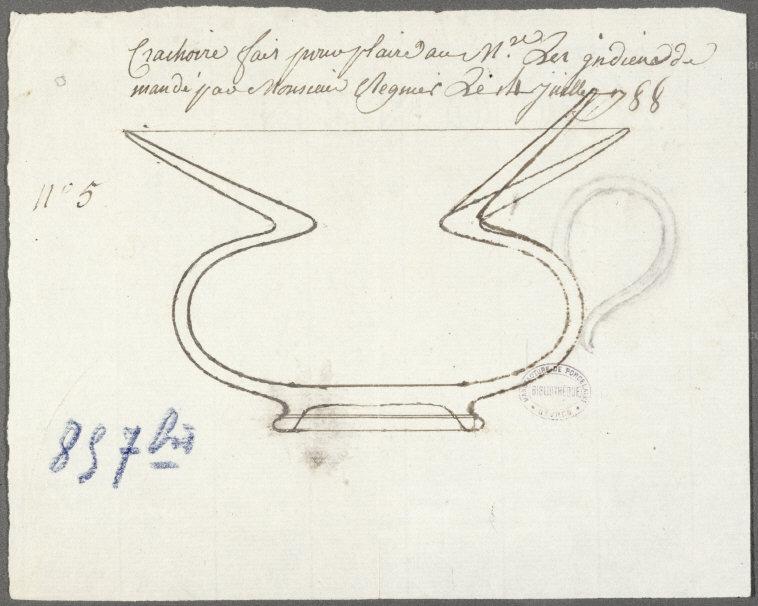 Crachoire fait pour plaire au Mrs Les indiens de
mandé par Monsieur Regnier Le 14 juillet 1788
n° 5
MANUFACTURE DE PORCELAINE
BIBLIOTHÈQUE
SÈVRES
857 bis